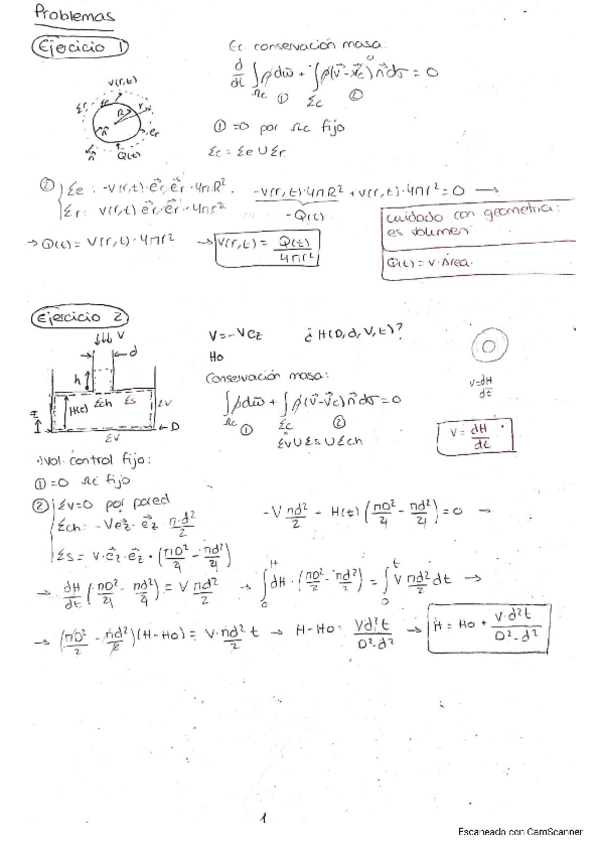 Problemas
Ejercicio 1
Ec conservación masa:
d/dt ∫ρdω + ∫ρ(v⃗-v⃗c)n⃗dσ = 0
Ωc ① Σc ②
V(r,t)
Q(t)
① =0 por Ωc fijo
Σc = Σe ∪ Σr
② Σe: -V(r,t)·e⃗r·e⃗r·4πR². -V(r,t)·4πR² + V(r,t)·4πr² = 0 →
Σr: V(r,t) e⃗r e⃗r·4πr² -Q(t)
→ Q(t) = V(r,t)·4πr² → V(r,t) = Q(t)/4πr²
cuidado con geometria:
es volumen
Q(t) = v·Área.
Ejercicio 2
V = -Vez ¿H(D,d,V,t)?
Ho
Conservación masa:
∫ρdω + ∫ρ(v⃗-v⃗c)n⃗dσ = 0
Ωc ① Σc ②
Σv∪Σs∪Σch
V
d
h
H(t) Σch Σs Σv
D
Σv
v=dH/dt
V = dH/dt
Vol. control fijo:
① =0 Ωc fijo
② Σv=0 por pared
Σch: -Ve⃗z·e⃗z π·d²/2
Σs = v·e⃗z·e⃗z·(πD²/4 - πd²/4)
-V πd²/2 + H(t) (πD²/4 - πd²/4) = 0 →
→ dH/dt (πD²/4 - πd²/4) = V πd²/2 → ∫dH·(πD²/2 - πd²/2) = ∫V πd²/2 dt →
→ (πD²/2 - πd²/2)(H-Ho) = V·πd²/2 t → H-Ho = Vd²t/D²-d² → H = Ho + V·d²t/D²-d²
1
Escaneado con CamScanner